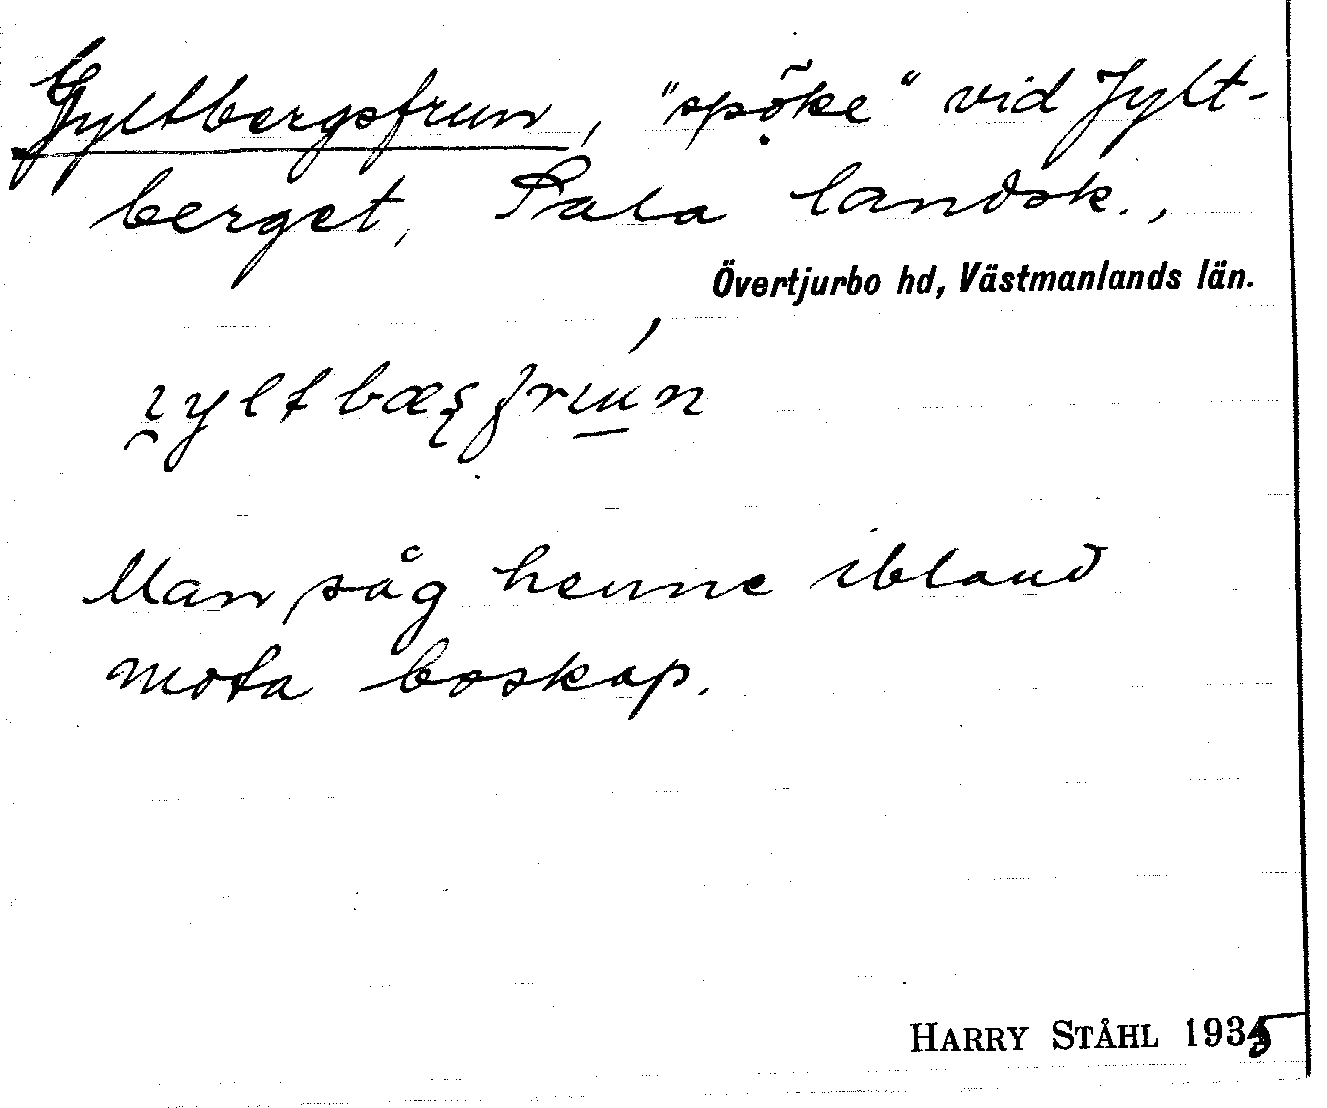 Gyltbergsfrun, "spöke" vid Jylt-
berget, Sala landsk.,
Övertjurbo hd, Västmanlands län.
Man såg henne ibland
mota boskap.
HARRY STÅHL 1935